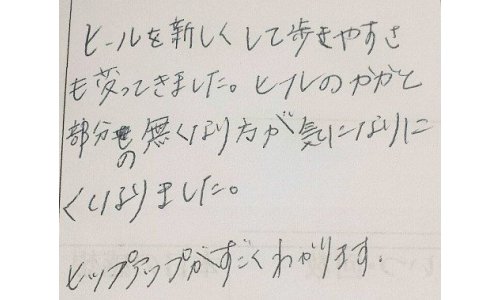 ヒールを新しくして歩きやすさ
も変ってきました。ヒールのかかと
部分の無くなり方が気になりに
くくなりました。
ヒップアップがすごくわかります.